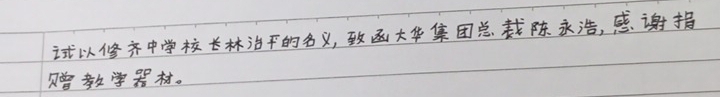 试以修齐中学校长林治平的名义,致函大华集团总裁陈永浩,感谢捐
赠教学器材。